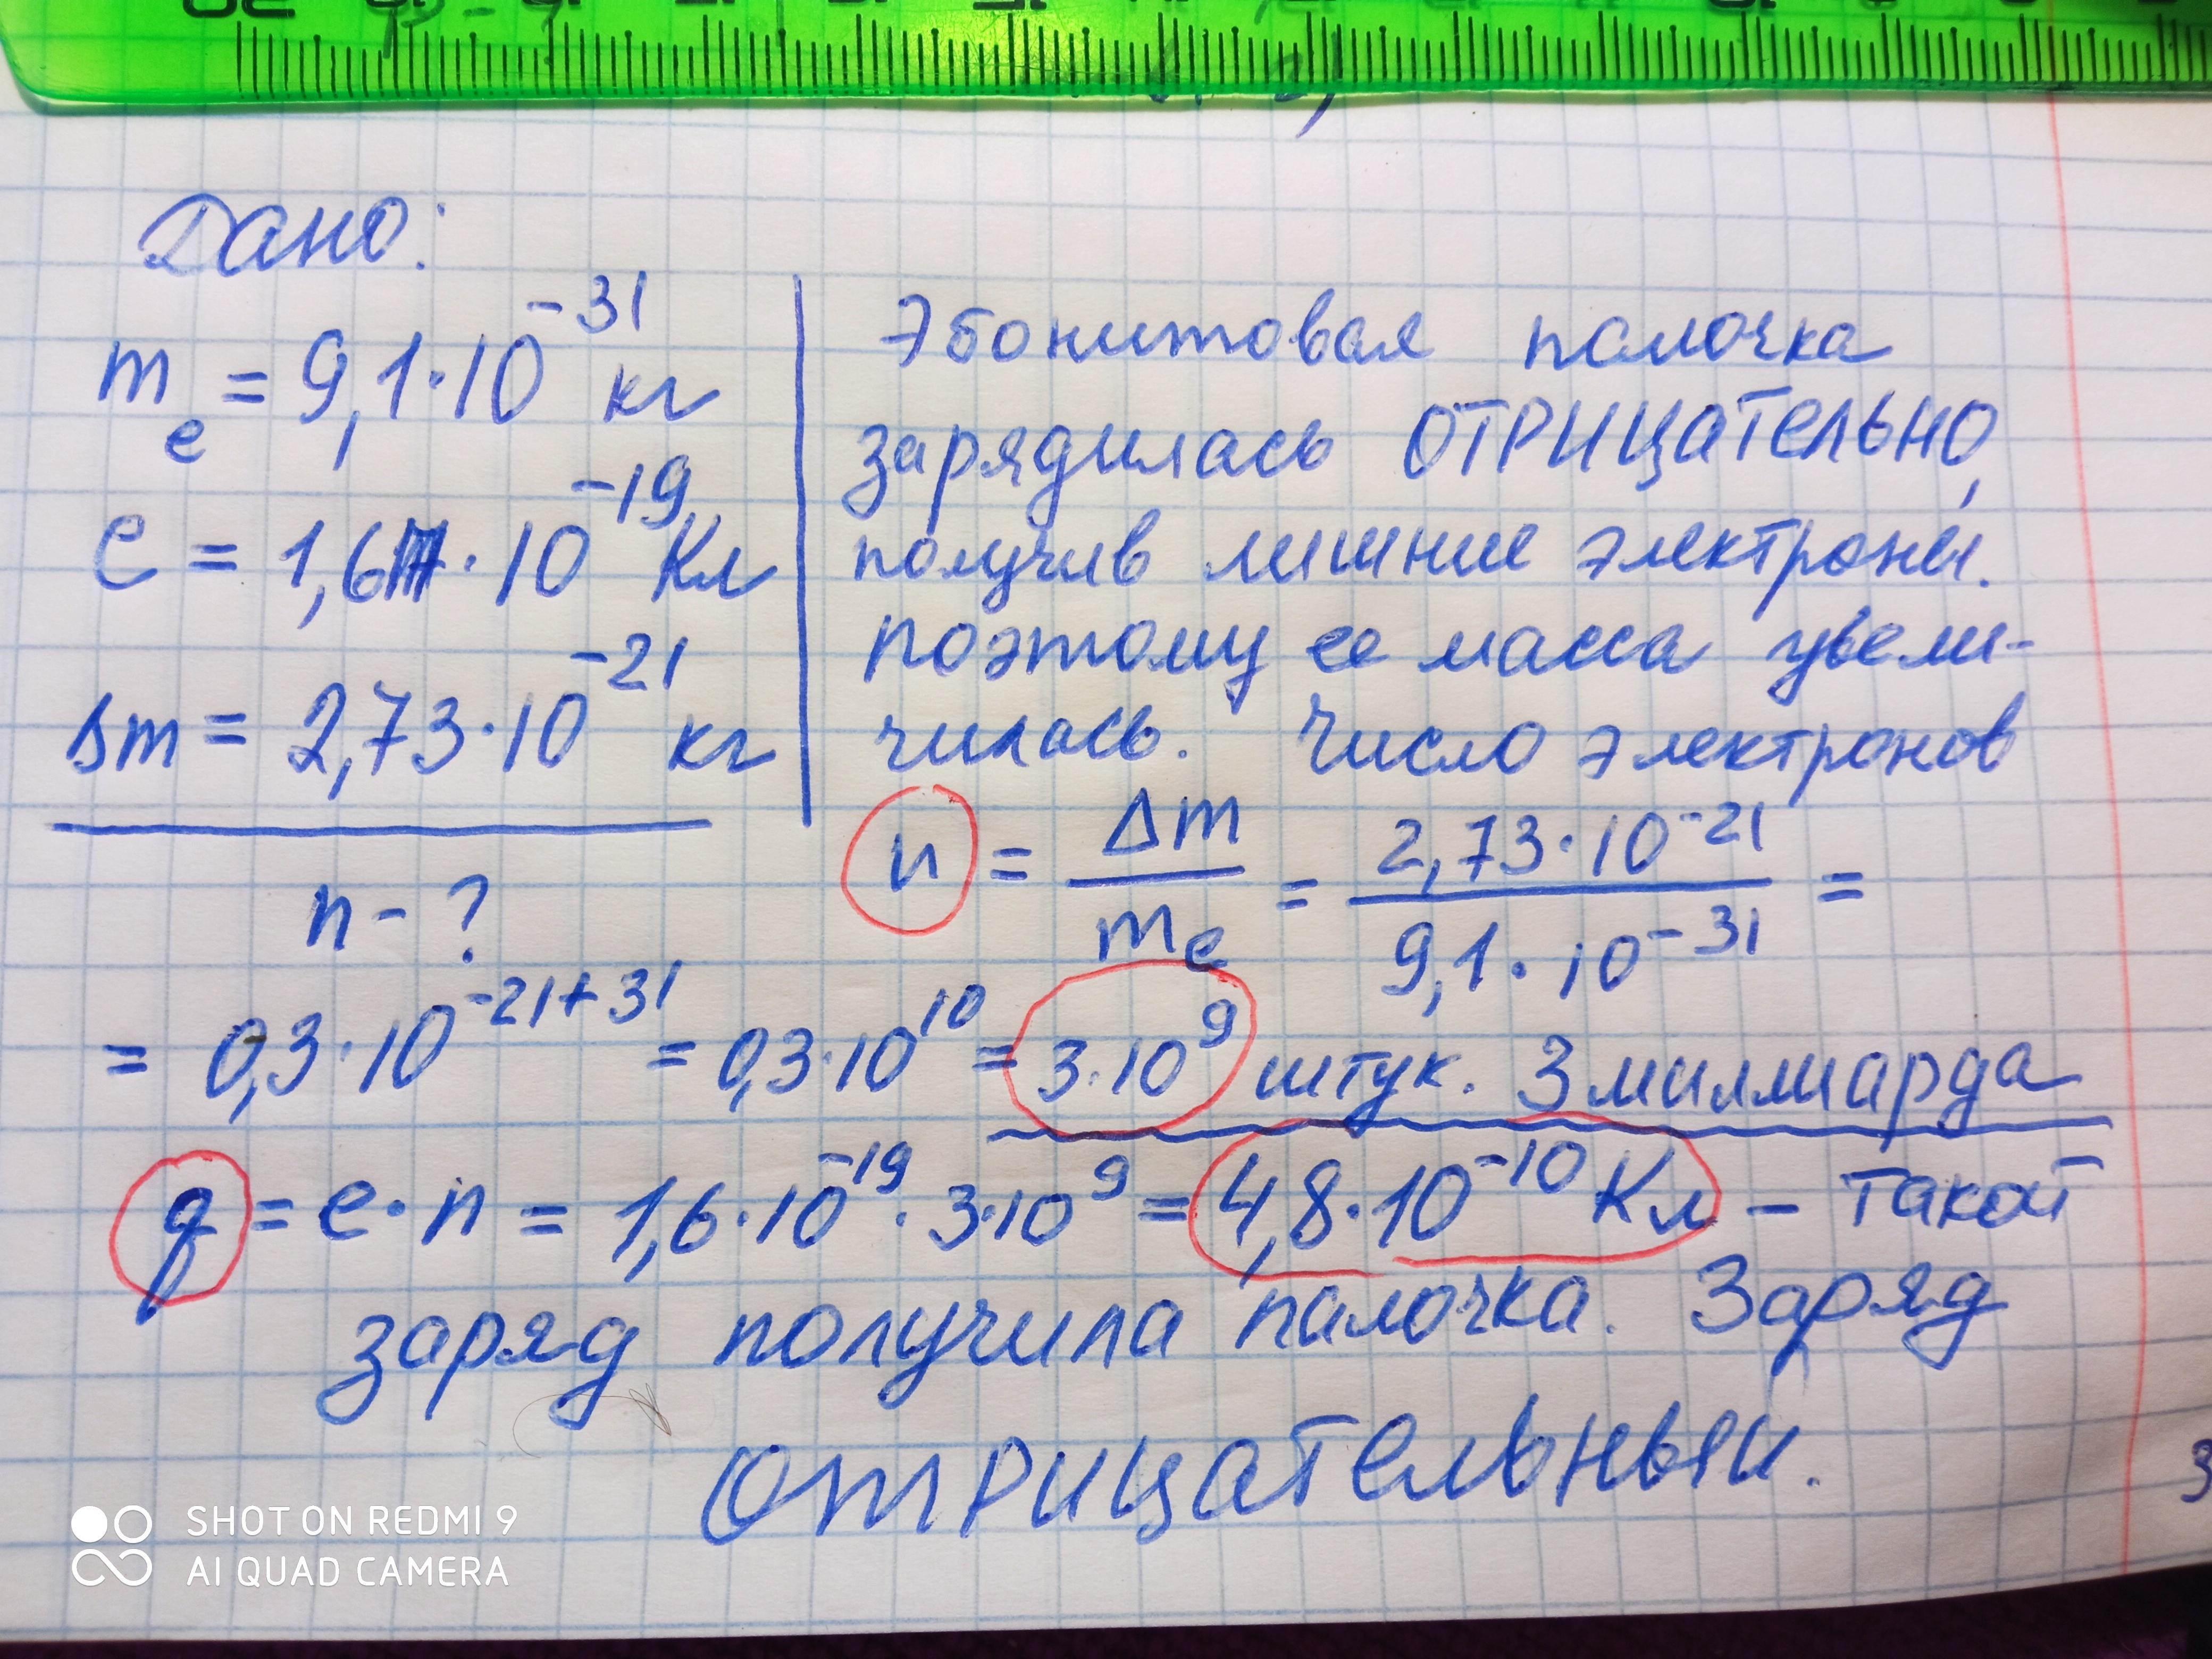 Дано:
m e = 9,1·10⁻³¹ кг
e = 1,6·10⁻¹⁹ Кл
Δm = 2,73·10⁻²¹ кг
n - ?
Эбонитовая палочка
зарядилась ОТРИЦАТЕЛЬНО,
получив лишние электроны.
поэтому ее масса увели-
чилась. Число электронов
n = Δm / mₑ = 2,73·10⁻²¹ / 9,1·10⁻³¹ =
= 0,3·10⁻²¹⁺³¹ = 0,3·10¹⁰ = 3·10⁹ штук. 3 миллиарда
q = e·n = 1,6·10⁻¹⁹·3·10⁹ = 4,8·10⁻¹⁰ Кл – такой
заряд получила палочка. Заряд
отрицательный.
SHOT ON REDMI 9
AI QUAD CAMERA